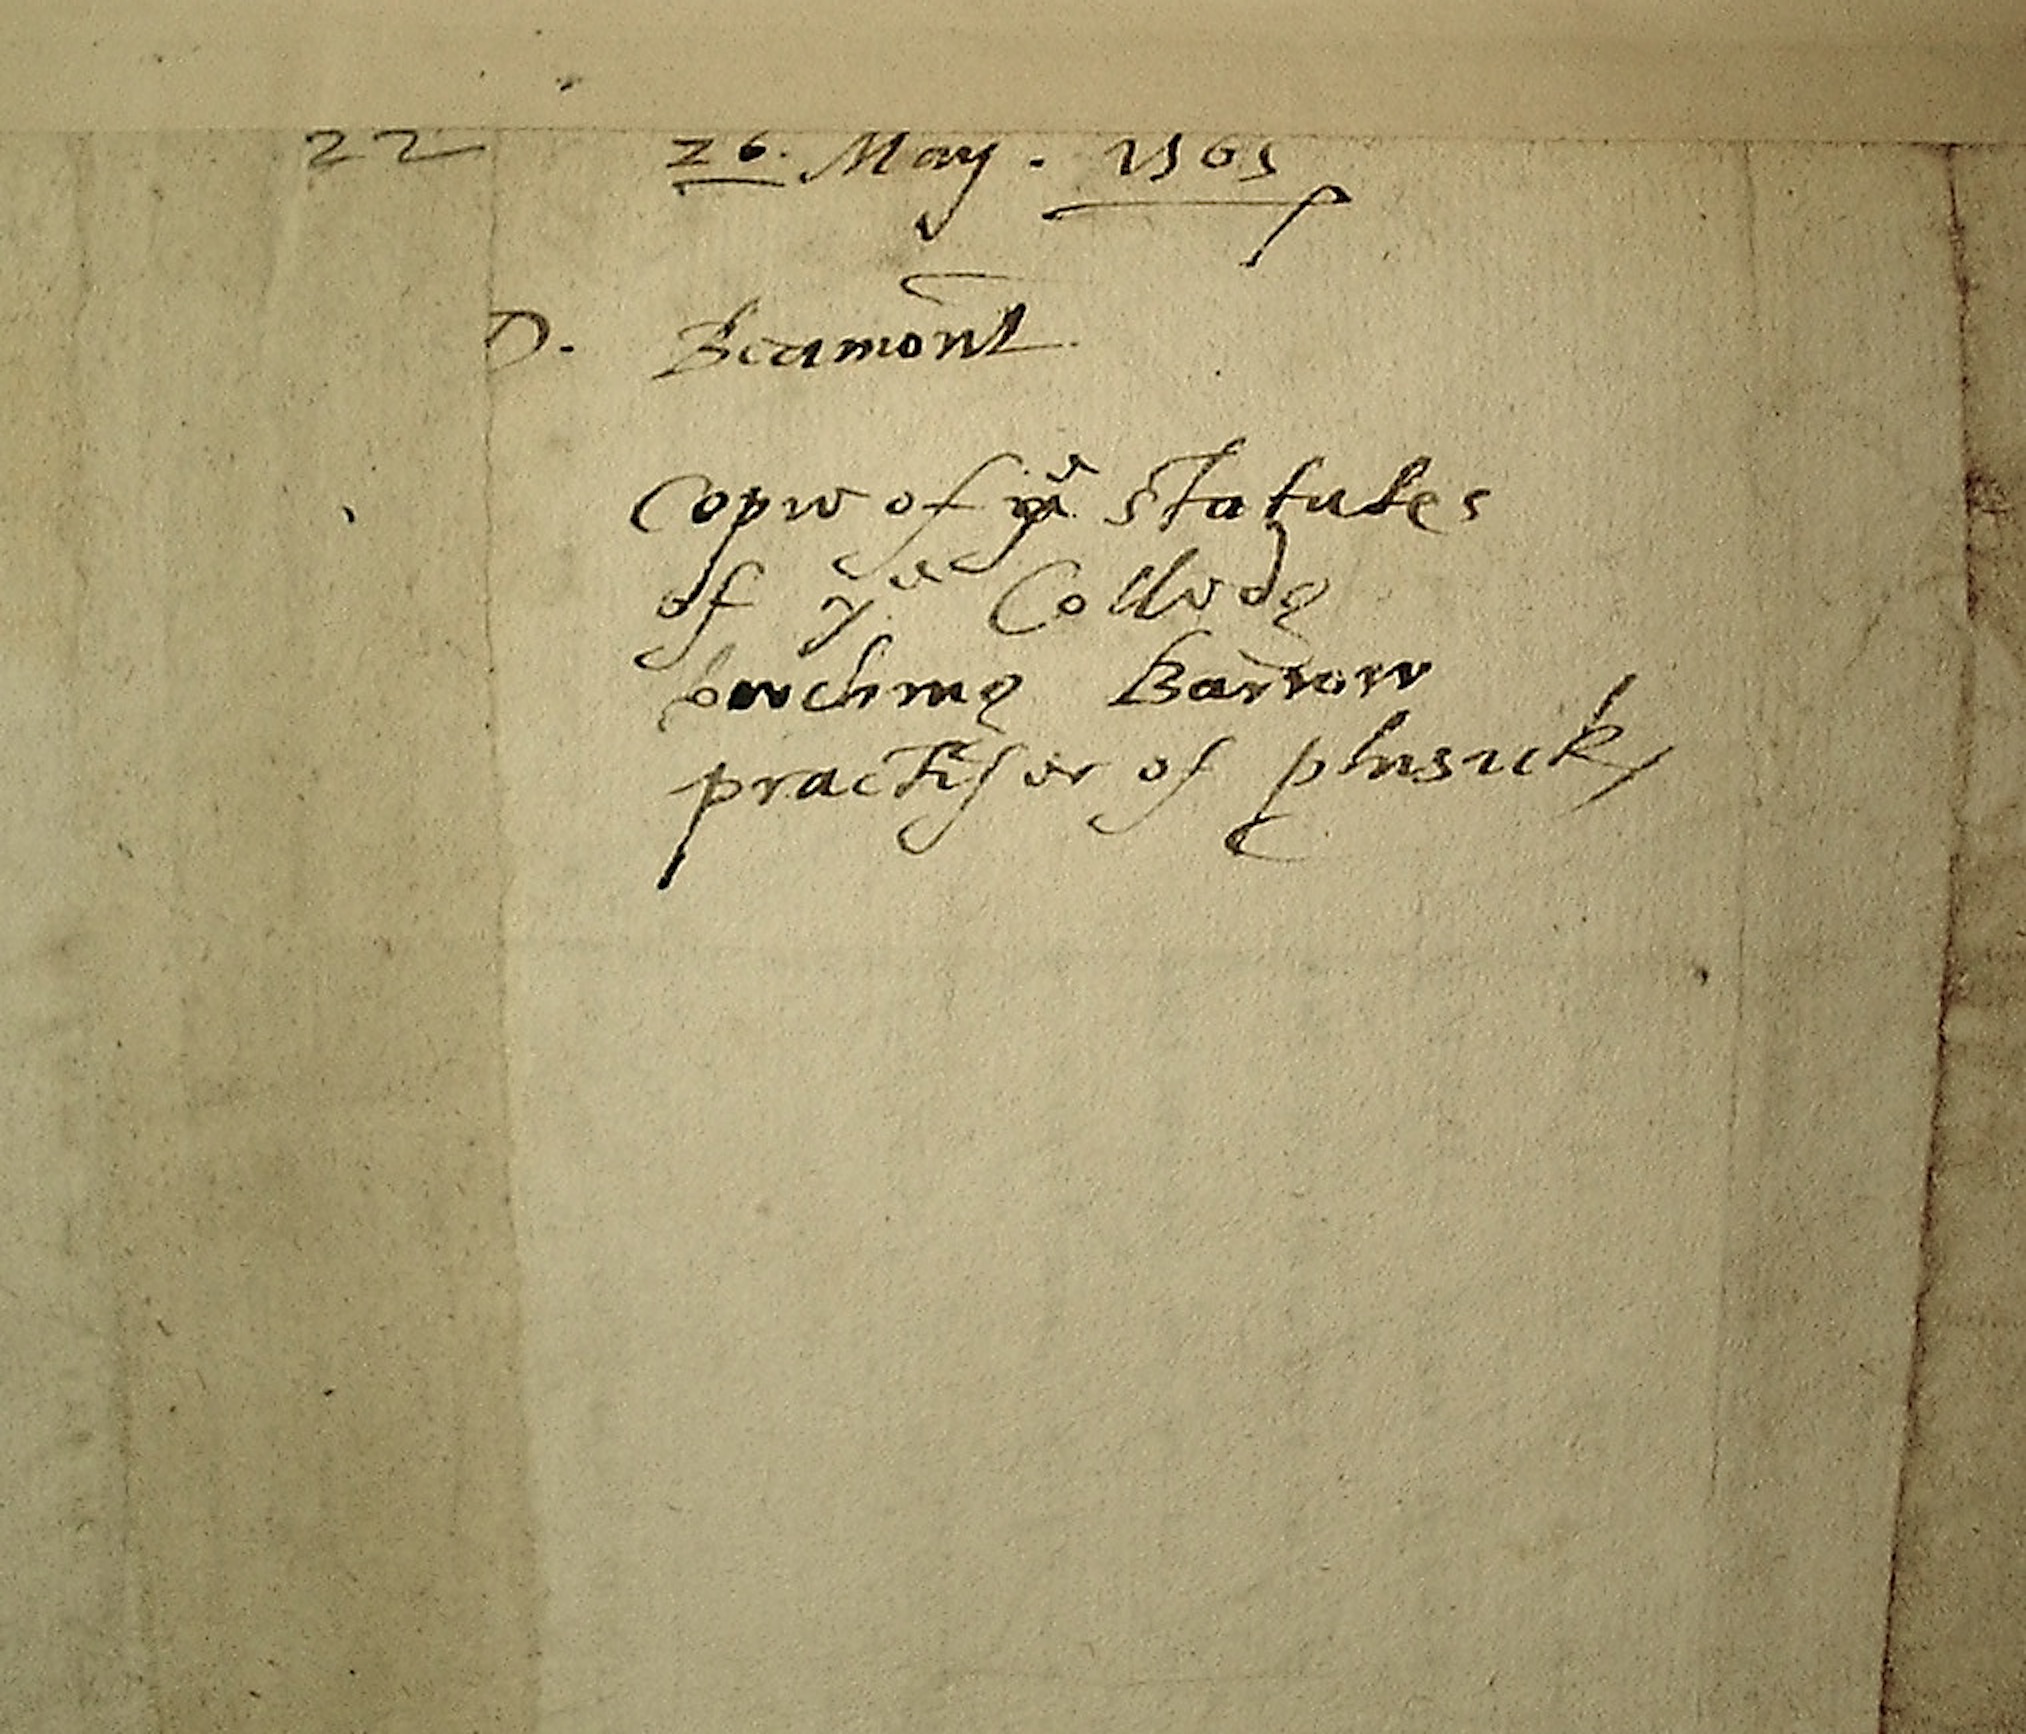 22 26. May. 1565
D. Beamont
Copie of ye statutes
of ye Colledg
touching Barrow
practiser of phisick